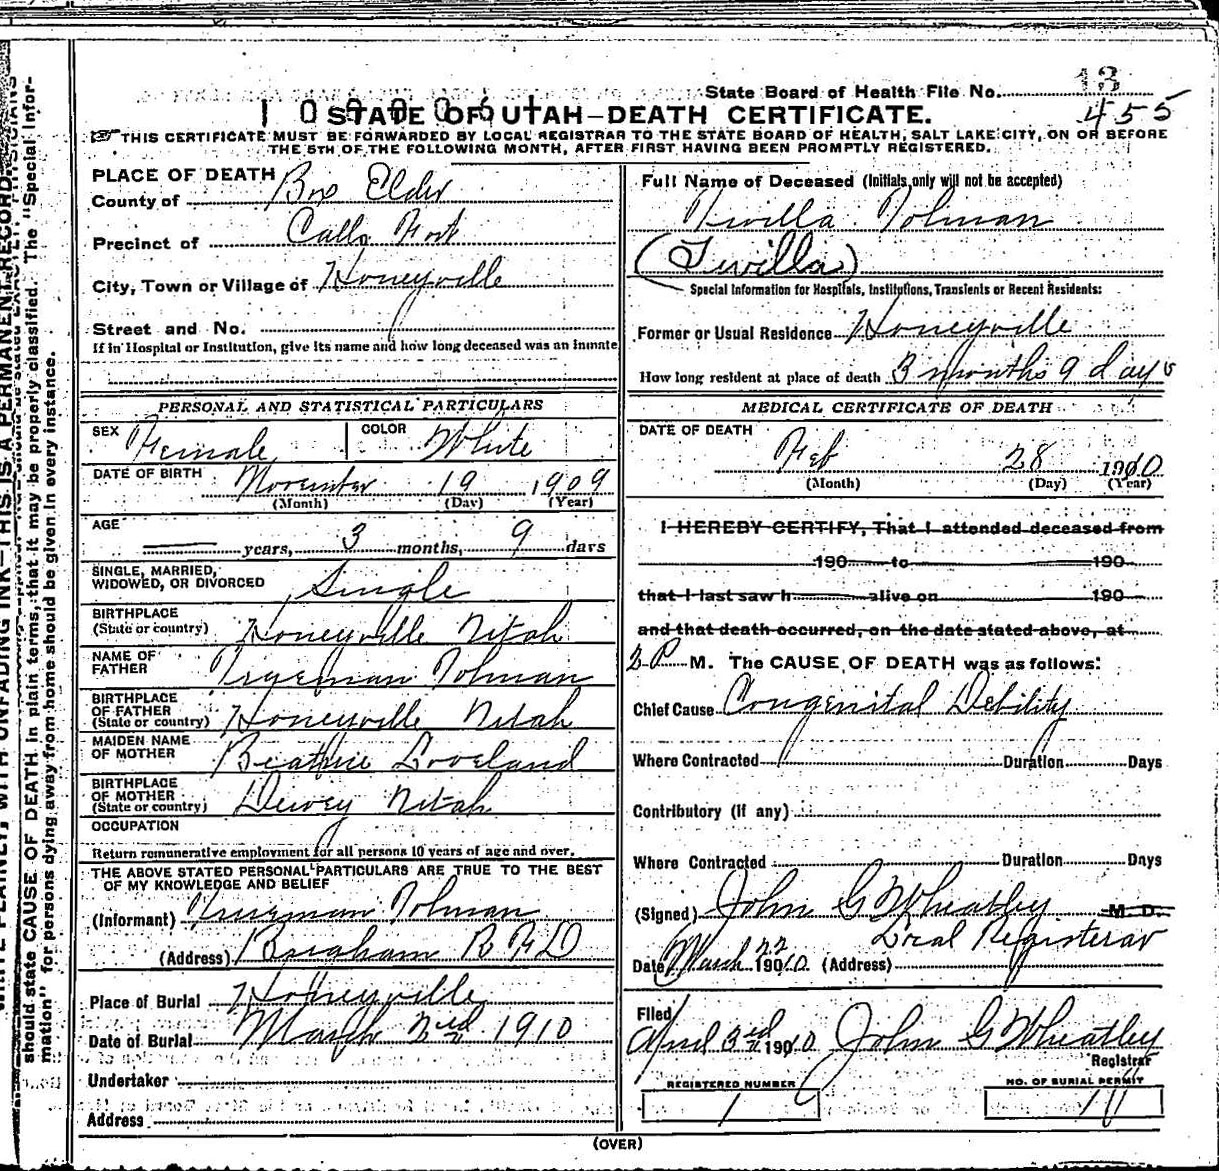 State Board of Health File No. 13
STATE OF UTAH—DEATH CERTIFICATE. 455
THIS CERTIFICATE MUST BE FORWARDED BY LOCAL REGISTRAR TO THE STATE BOARD OF HEALTH, SALT LAKE CITY, ON OR BEFORE
THE 5TH OF THE FOLLOWING MONTH, AFTER FIRST HAVING BEEN PROMPTLY REGISTERED.
PLACE OF DEATH
County of Box Elder
Precinct of Calls Fort
City, Town or Village of Honeyville
Street and No.
If in Hospital or Institution, give its name and how long deceased was an inmate
Full Name of Deceased (Initials only will not be accepted)
Tolman
Special Information for Hospitals, Institutions, Transients or Recent Residents:
Former or Usual Residence Honeyville
How long resident at place of death 3 months 9 days
PERSONAL AND STATISTICAL PARTICULARS
SEX Female COLOR White
DATE OF BIRTH November 19 1909
(Month) (Day) (Year)
AGE
— years, 3 months, 9 days
SINGLE, MARRIED,
WIDOWED, OR DIVORCED Single
BIRTHPLACE
(State or country) Honeyville Utah
NAME OF
FATHER Tolman
BIRTHPLACE
OF FATHER
(State or country) Honeyville Utah
MAIDEN NAME
OF MOTHER Beatrice Loveland
BIRTHPLACE
OF MOTHER
(State or country) Dewey Utah
OCCUPATION
Return remunerative employment for all persons 10 years of age and over.
THE ABOVE STATED PERSONAL PARTICULARS ARE TRUE TO THE BEST
OF MY KNOWLEDGE AND BELIEF
(Informant) Tolman
(Address) Brigham R F D
Place of Burial Honeyville
Date of Burial March 2nd 1910
Undertaker
Address
MEDICAL CERTIFICATE OF DEATH
DATE OF DEATH
Feb 28 1910
(Month) (Day) (Year)
I HEREBY CERTIFY, That I attended deceased from
190 to 190
that I last saw h alive on 190
and that death occurred, on the date stated above, at
2 P M. The CAUSE OF DEATH was as follows:
Chief Cause Congenital Debility
Where Contracted Duration Days
Contributory (if any)
Where Contracted Duration Days
(Signed) John G Wheatley M. D.
Local Registerar
Date March 22 1910 (Address)
Filed
April 3rd 1910 John G Wheatley
Registrar
REGISTERED NUMBER 1
NO. OF BURIAL PERMIT
(OVER)
should state CAUSE OF DEATH in plain terms, that it may be properly classified. The "Special Infor-
mation" for persons dying away from home should be given in every instance.